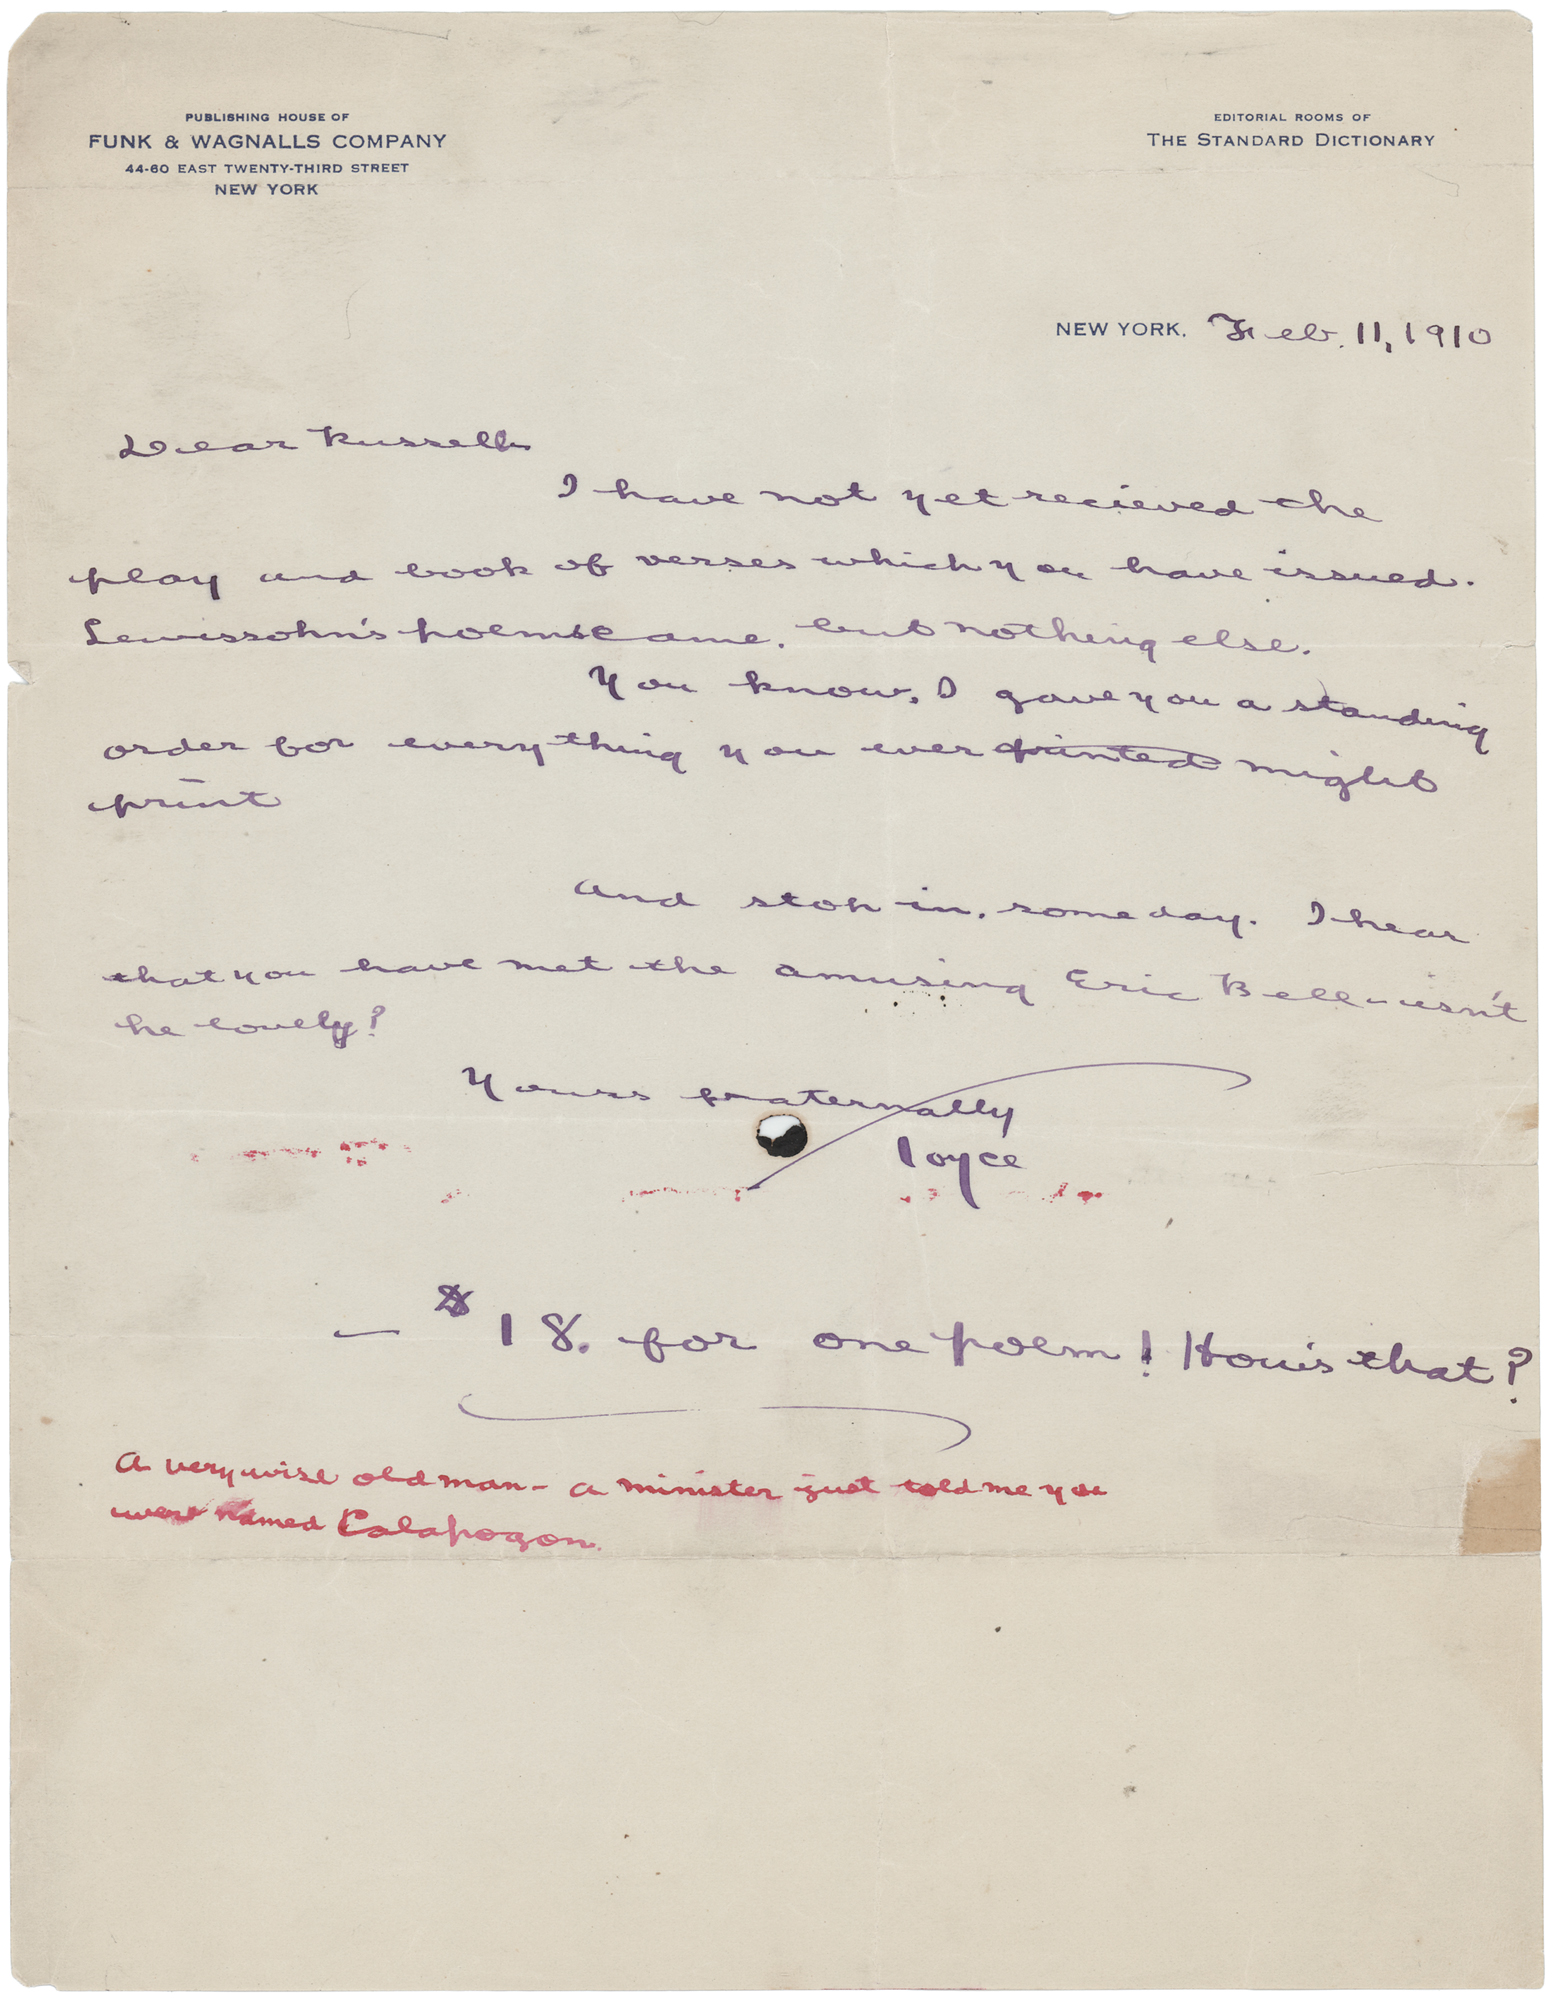 PUBLISHING HOUSE OF
FUNK & WAGNALLS COMPANY
44-60 EAST TWENTY-THIRD STREET
NEW YORK
EDITORIAL ROOMS OF
THE STANDARD DICTIONARY
NEW YORK. Feb. 11, 1910
Dear Russell
I have not yet recieved the
play and book of verses which you have issued.
Lewissohn's poems came, but nothing else.
You know, I gave you a standing
order for everything you ever printed might
print
And stop in, someday. I hear
that you have met the amusing Eric Bell - isn't
he lovely?
Yours fraternally
Joyce
— $18. for one poem! How's that?
A very wise old man - a minister just told me you
were named Calapogon.